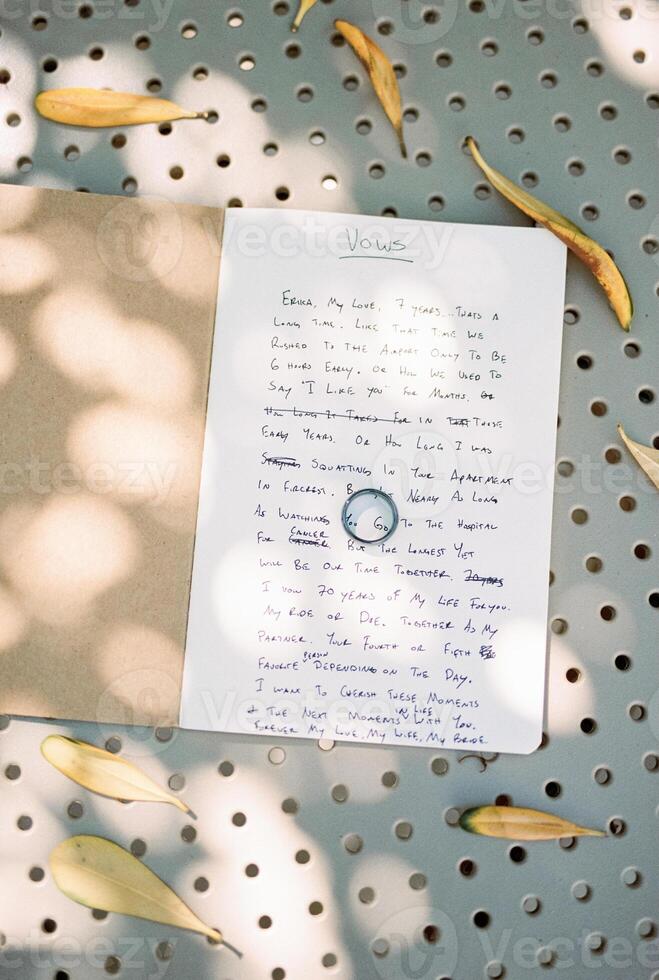 Vows
Erika, My Love, 7 years... thats a
long time. Like that time we
rushed to the airport only to be
6 hours early. Or how we used to
say "I like you" for months. or
how long it takes for in that those
early years. Or how long I was
staying squatting in your apartment
in Fircrest. But not nearly as long
as watching you go to the hospital
for cancer cancer. But the longest yet
will be our time together. 70 years
I vow 70 years of my life for you.
My ride or die. Together as my
partner. Your fourth or fifth
favorite person depending on the day.
I want to cherish these moments
& the next moments in life with you.
Forever my love, my wife, my bride
Vecteezy